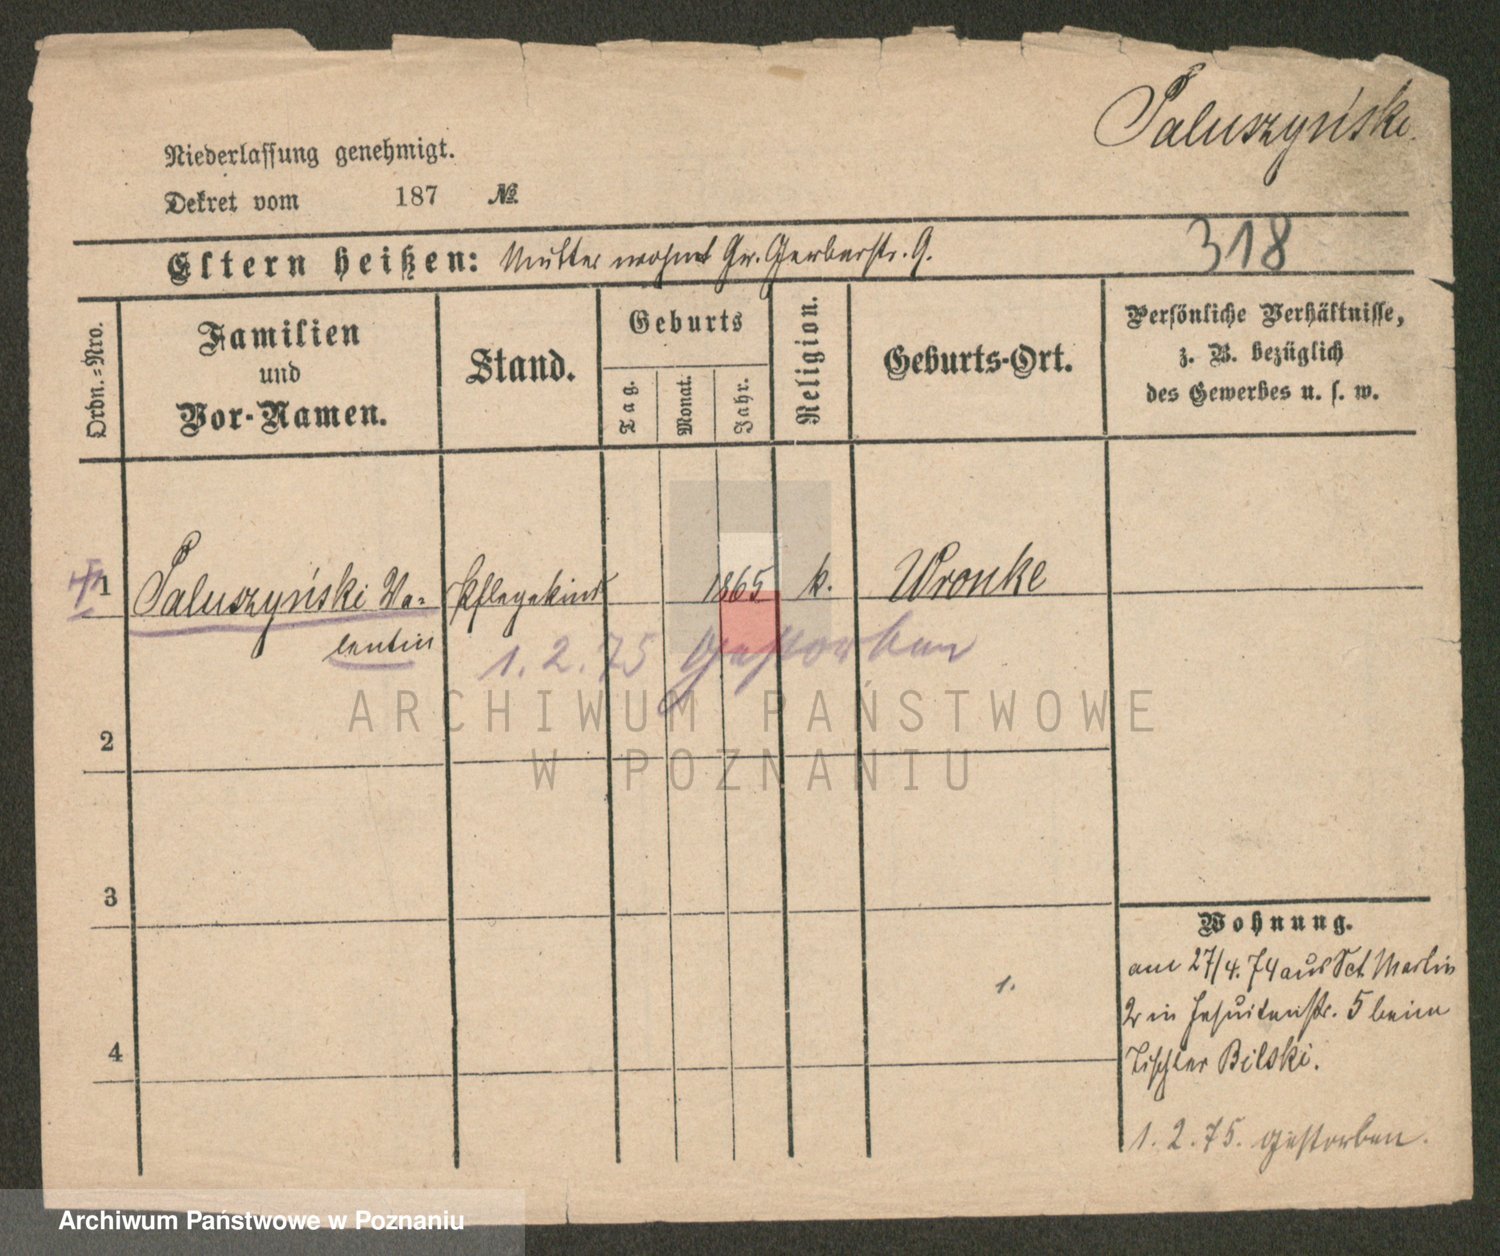 Paluszyński.
Niederlassung genehmigt.
Dekret vom 187 №
Eltern heißen: Mutter wohnt Gr. Gerberstr. 9.
318
Ordn.-Nro.
Familien
und
Vor-Namen.
Stand.
Geburts
Tag.
Monat.
Jahr.
Religion.
Geburts-Ort.
Persönliche Verhältnisse,
z. B. bezüglich
des Gewerbes u. s. w.
1 Paluszyński Va- Pflegekind 1865 k. Wronke
lentin
1. 2. 75 gestorben
2
3
4
Wohnung.
am 27/4. 74 aus Sct. Martin
2 in Jesuitenstr. 5 beim
Tischler Bilski.
1. 2. 75. gestorben.
1.
ARCHIWUM PAŃSTWOWE
W POZNANIU
Archiwum Państwowe w Poznaniu